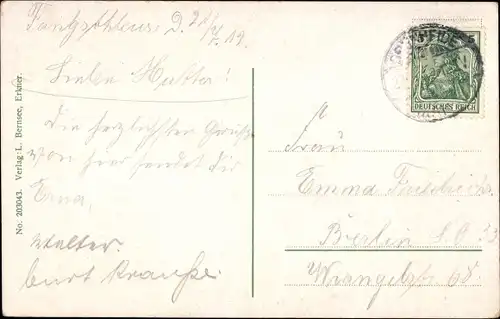 Liebe Mutter!
Die herzlichsten Grüße
von hier sendet dir
Erna,
Walter
Curt Krause
No: 203043. Verlag: L. Bernsee, Erkner.
DEUTSCHES REICH
5
Frau
Emma
Berlin S.O.
Wrangelstr 68.